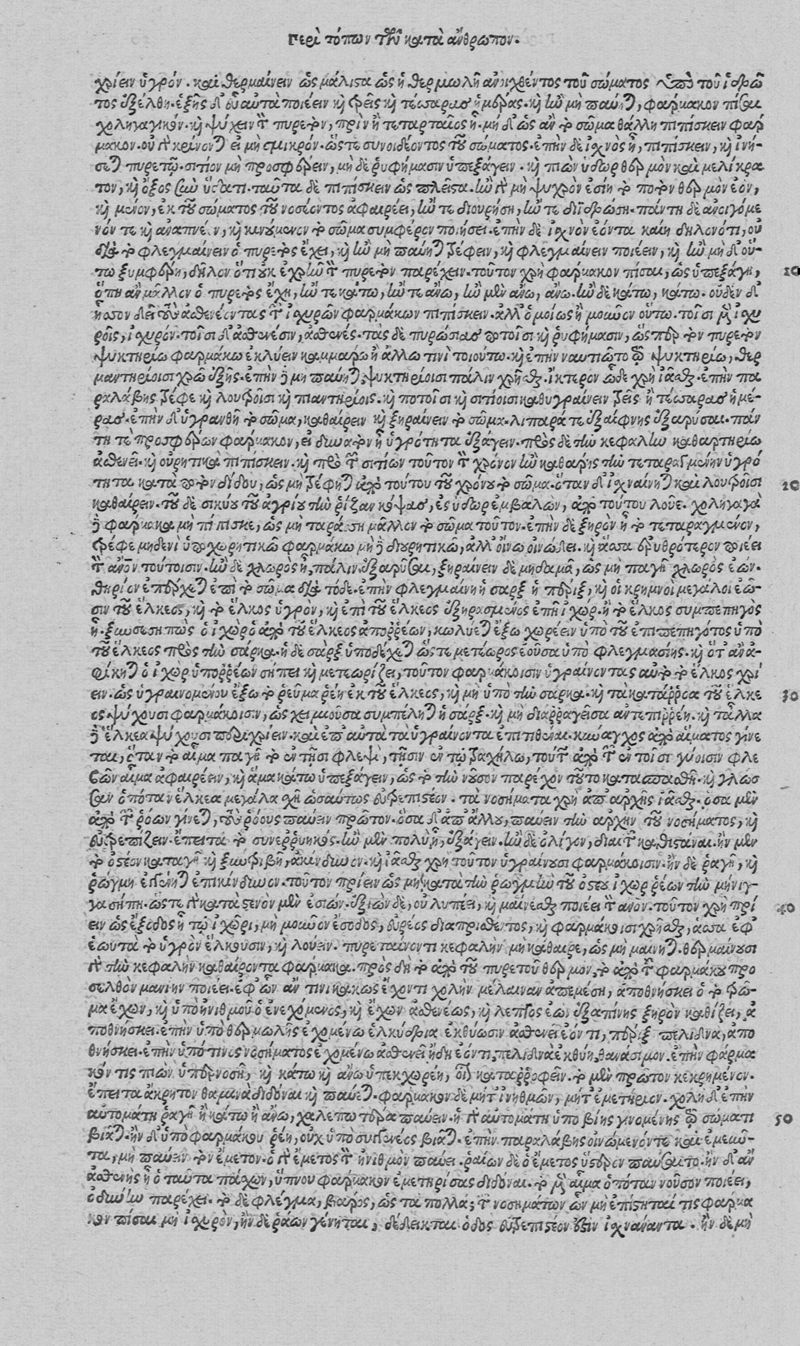 Περὶ τόπων τῶν κατὰ ἄνθρωπον.
χρίειν ὑγρόν. καὶ θερμαίνειν ὡς μάλιστα ὡς ἡ θερμωλὴ ἀνιχθέντος τοῦ σώματος ὑπὸ τοῦ ἱδρῶ
τος ἐξέλθῃ. ἑξῆς δ' οὖν αὐτὰ ποιέειν καὶ τρεῖς καὶ τέσσαρας ἡμέρας. καὶ ἢν μὴ παύηται, φάρμακον πῖσαι
χοληγαγικόν. καὶ ψύχειν τὸν πυρετὸν, πρὶν ἢ τεταρταῖος ᾖ. μὴ δ' ὡς ἂν τὸ σῶμα θάλλῃ πιπίσκειν φάρ
μακον. οὐ γὰρ κρίνοντ εἰ μὴ σμικρόν. ὥστε συνοιδέοντος τοῦ σώματος. ἐπὴν δὲ ἰσχνὸς ᾖ, πιπίσκειν, καὶ ἰνή
σεται πυρετῷ. σιτίον μὴ προσφέρειν, μὴ δὲ ῥυφήμασιν ὑπεξάγειν. καὶ πιὼν ὕδωρ θερμὸν καὶ μελίκρα
τον, καὶ ὄξος σὺν ὕδατι. ταῦτα δὲ πιπίσκειν ὡς πλεῖστα. ἢν γὰρ μὴ ψυχρὸν ἐσίῃ τὸ ποτὸν θερμὸν ἐὸν,
καὶ μένον, ἐκ τοῦ σώματος τοῦ νοσέοντος ἀφαιρέει, ἤν τε διουρήσῃ, ἤν τε διϊδρώσῃ. πάντη δὲ ἀνοιγόμε
νόν τε καὶ ἀναπνέον, καὶ κινούμενον τὸ σῶμα συμφέρον ποιήσει. ἐπὴν δὲ ἰσχνὸν ἐόντα καίῃ δηλονότι, οὐ
διὰ τὸ φλεγμαίνειν ὁ πυρετὸς ἔχει, καὶ ἢν μὴ παύηται τρέφειν, καὶ φλεγμαίνειν ποιέειν, καὶ ἢν μὴ δ' οὕ
τω ξυμφέρῃ, δῆλον ὅτι οὐκ ἐχρῆν τὸν πυρετὸν παρέχειν. τοῦτον χρὴ φάρμακον πῖσαι, ὡς ὑπεξάγῃ, 10
ὅπη ἂν μᾶλλον ὁ πυρετὸς ἔχῃ, ἤν τε κάτω, ἤν τε ἄνω, ἢν μὲν ἄνω, ἄνω. ἢν δὲ κάτω, κάτω. οὐδὲν δ'
ἧσσον δεῖ τοὺς ἀσθενέοντας τῶν ἰσχυρῶν φαρμάκων πιπίσκειν. ἀλλ' ὁμοίως ἢ μοῦνον οὕτω. τοῖσι μὲν ἰσχυ
ροῖς, ἰσχυρόν. τοῖσι δ' ἀσθενέσιν, ἀσθενές. τὰς δὲ πυρώσιας ποτοῖσι καὶ ῥυφήμασιν, ὥσπερ τὸν πυρετὸν
ψυκτηρίῳ φαρμάκῳ ἐκλύειν καμμάρῳ ἢ ἄλλῳ τινὶ τοιούτῳ. καὶ ἐπὴν ναυτιῶτο τῷ ψυκτηρίῳ, θερ
μαντηρίοισι χρῶ ἑξῆς. ἐπὴν δὲ μὴ παύηται, ψυκτηρίοισι πάλιν χρῆσθαι. ἴκτερον ὧδε χρὴ ἰᾶσθαι. ἐπὴν πα
ραλάβῃς τρέφε καὶ λουτροῖσι καὶ πιαντηρίοις. καὶ ποτοῖσι καὶ σιτίοισι καθυγραίνειν τρεῖς ἢ τέσσαρας ἡμέ
ρας. ἐπὴν δ' ὑγρανθῇ τὸ σῶμα, καθαίρειν καὶ ξηραίνειν τὸ σῶμα. λιπαρά τε ἐξαίφνης ἐξαρύσαι. πάν
τη τε προσφέρων φάρμακον, εἰ δυνατὸν ᾖ ὑγρότητα ἐξάγειν. πρὸς δὲ τὴν κεφαλὴν καθαρτηρίῳ
ἀσθενεῖ. καὶ οὐρητικὰ πιπίσκειν. καὶ πρὸ τῶν σιτίων τοῦτον τὸν χρόνον ἢν καθαίρῃς τὴν τεταραγμένην ὑγρό
τητα κατὰ ποτὸν δίδου, ὡς μὴ τρέφηται ἀπὸ τούτου τοῦ χρόνου τὸ σῶμα. ὅταν δ' ἰσχναίνηται καὶ λουτροῖσι 20
καθαίρειν. τοῦ δὲ σικύου τοῦ ἀγρίου τὴν ῥίζαν κόψας, ἐς ὕδωρ ἐμβαλὼν, ἀπὸ τούτου λοῦε. χοληγαγὰ
δὲ φάρμακα μὴ πίπισκε, ὡς μὴ ταράσσῃ μᾶλλον τὸ σῶμα τοῦτον. ἐπὴν δὲ ξηρὸν ᾖ τὸ τεταραγμένον,
τρέφε μηδενὶ ὑποχωρητικῷ φαρμάκῳ μὴ δὲ διουρητικῷ, ἀλλ' οἴνῳ οἰνώδει. καὶ ὅσα ἐρυθρότερον ποιέει
τὸν ἄνον τούτοισιν. ἢν δὲ χλωρὸς ᾖ, πάλιν ἐξαρῦσαι, ξηραίνειν δὲ μηδαμᾶ, ὡς μὴ παγῇ χλωρὸς ἐών.
θηρίον ἐπέρχεται ἐπὶ τὸ σῶμα διὰ τόδε. ἐπὴν φλεγμαίνῃ ἡ σὰρξ ἡ πέριξ, καὶ οἱ κρημνοὶ μεγάλοι ἔω
σιν τοῦ ἕλκεος, καὶ τὸ ἕλκος ὑγρόν, καὶ ἐπὶ τοῦ ἕλκεος ἐξηρασμένος ἐπῇ ἰχώρ. ἢ τὸ ἕλκος συμπεπηγὸς
ᾖ. ξυωσεσηπὼς ὁ ἰχὼρ ὁ ἀπὸ τοῦ ἕλκεος ἀπορρέων, κωλύεται ἔξω χωρέειν ὑπὸ τοῦ ἐπιπεπηγότος ὑπὸ
τοῦ ἕλκεος πρὸς τὴν σάρκα. ἡ δὲ σὰρξ ὑποδέχεται ὥς τε μετέωρος ἐοῦσα ὑπὸ φλεγμασίης. καὶ ὅτ' ἂν ἀ
φίκηται ὁ ἰχὼρ ὑπορρέων σήπει καὶ μετεωρίζει, τοῦτον φαρμάκοισιν ὑγραίνοντας αὐτὸ τὸ ἕλκος χρί
ειν. ὡς ὑγραινομένου ἔξω τὸ ῥεῦμα ῥέῃ ἐκ τοῦ ἕλκεος, καὶ μὴ ὑπὸ τὴν σάρκα. καὶ τὰ κατάρροα τοῦ ἕλκε 30
ος ψύχουσι φαρμάκοισιν, ὡς χειμοῦσα συμπέληται ἡ σάρξ. καὶ μὴ διαρραγεῖσα ἀντεπιρρέῃ. καὶ τἆλλα
δὲ ἕλκεα ψύχουσι περιχρίειν. καὶ ἐπ' αὐτὰ τὰ ὑγραίνοντα ἐπιτιθέναι. κυνάγχος ἀπὸ αἵματος γίνε
ται, ὅταν τὸ αἷμα παγῇ τὸ ἐν τῇσι φλεψὶ, τῇσιν ἐν τῷ τραχήλῳ, τούτων ἀπὸ τῶν ἐν τοῖσι γυίοισιν φλε
βῶν αἷμα ἀφαιρέειν, καὶ ἅμα κάτω ὑπεξάγειν, ὡς τὸ τὴν νοῦσον παρέχον τοῦτο κατασπασθῇ. καὶ γλῶσ
σαν ὁπόταν ἕλκεα μεγάλα σχῇ ὡσαύτως θεραπευτέον. τὰ νοσήματα χρὴ ἀπ' ἀρχῆς ἰᾶσθαι. ὅσα μὲν
ἀπὸ τῶν ῥόων γίνεται, τοὺς ῥόους παύειν πρῶτον. ὅσα δ' ἀπ' ἄλλου, παύειν τὴν ἀρχὴν τοῦ νοσήματος, καὶ
θεραπίζειν. ἔπειτα τὸ συνερρυηκὸς, ἢν μὲν πολὺ ᾖ, ἐξάγειν. ἢν δὲ ὀλίγον, διαιτῶν καθιστάναι. ἢν μὲν
τὸ ὀστέον καταγῇ καὶ ξυντριβῇ, ἀκίνδυνον. καὶ ἰᾶσθαι χρὴ τοῦτον ὑγραίνουσι φαρμάκοισιν. ἢν δὲ ῥαγῇ, καὶ
ῥωγμὴ ἐγγένηται ἐπικίνδυνον. τοῦτον πρίειν ὡς μὴ κατὰ τὴν ῥωγμὴν τοῦ ὀστέου ἰχὼρ ῥέων τὴν μήνιγ
γα σήπῃ. ὥς τε γὰρ κατὰ στενὸν μὲν ἐσιὼν. ἐξιὼν δὲ, οὐ λυπεῖ, καὶ μαίνεσθαι ποιέει τὸν ἄνον. τοῦτον χρὴ πρί 40
ειν ὡς ἔξοδος ᾖ τῷ ἰχῶρι, μὴ μοῦνον ἔσοδος, εὐρέος διαπρισθέντος, καὶ φαρμάκοισι χρῆσθαι, ὅσα ἐφ'
ἑωυτὰ τὸ ὑγρὸν ἕλκουσιν, καὶ λούειν. πυρεταίνοντι κεφαλὴν μὴ κάθαιρε, ὡς μὴ μαίνηται. θερμαίνουσι
γὰρ τὴν κεφαλὴν καθαίροντα φάρμακα. πρὸς δὴ τὸ ἀπὸ τοῦ πυρετοῦ θερμὸν, τὸ ἀπὸ τοῦ φαρμάκου προ
σελθὸν μανίην ποιέει. ἐφ' ὧν ἄν τινι κακῶς ἔχοντι χολὴν μέλαιναν ἀπεμέσῃ, ἀποθνήσκει ὁ τὸ τρῶ
μα ἔχων, καὶ ὑπὸ ἠνιθμοῦ ὁ ἐνεχόμενος, καὶ ἔχων ἀσθενέως, καὶ λεπτὸς ἐὼν. ἐξαπίνης ξηρὸν καθίζει, ἀ
ποθνήσκει. ἐπὴν ὑπὸ θερμωλῆς ἐχομένῳ ἑλκύδρια ἐκθύωσιν ἀσθενεῖ ἐόντι, πέριξ πελιδνὰ, ἀπο
θνήσκει. ἐπὴν ὑπό τινος νοσήματος ἐχομένῳ ἀσθενεῖ ἤδη ἐόντι, πελιδνὰ ἐκθύῃ, θανάσιμον. ἐπὴν φάρμα
κόν τις πιὼν ὑπερνοσῇ, καὶ κάτω καὶ ἄνω ὑπεκχωρέῃ, οἶνον καταρροφεῖν. τὸ μὲν πρῶτον κεκρημένον.
ἔπειτα ἄκρητον θαμινὰ διδόναι καὶ παύεται. φάρμακον δὲ μήτ' ἰνηθμὸν, μήτ' ἐμετήριον. χολὴ δ' ἐπὴν
αὐτομάτη ῥαγῇ ἢ κάτω ἢ ἄνω, χαλεπωτέρα παύειν. ἡ γὰρ αὐτομάτη ὑπὸ βίης γινομένης τῷ σώματι 50
βιᾶται. ἢν δ' ὑπὸ φαρμάκου ῥέῃ, οὐχ ὑπὸ συγγενέος βιᾶται. ἐπὴν παραλάβῃς οἰνωμένον τε καὶ ἐμεῦν
τα, μὴ παύειν τὸν ἔμετον. ὁ γὰρ ἔμετος τὸν ἠνιθμὸν παύει. ῥᾴων δὲ ὁ ἔμετος ὕστερον παύσαιτο. ἢν δ' ἂν
ἀσθενὴς ᾖ ὁ ταῦτα πάσχων, ὕπνου φάρμακον ἐμετηρίσας διδόναι. τὸ μὲν αἷμα ὁπόταν νοῦσον ποιέει,
ὀδύνην παρέχει. τὸ δὲ φλέγμα, βάρος, ὡς τὰ πολλά; τῶν νοσημάτων ὧν μὴ ἐπίσταταί τις φάρμα
κον πῖσαι μὴ ἰσχυρὸν, ἢν δὲ ῥᾴων γένηται, δέδεικται ὁδὸς θεραπευτέον ἐστὶν ἰσχναίνοντα. ἢν δὲ μὴ